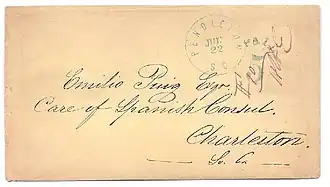 PENDLETON
JUN
22
S.C.
PAID
Emilio Puig Esqr.
Care of Spanish Consul.
Charleston.
So. Ca.